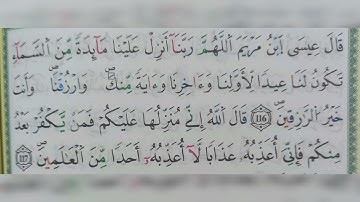 قَالَ عِيسَى اَبْنُ مَرْيَمَ اَللَّهُمَّ رَبَّنَآ أَنزِلْ عَلَيْنَا مَآئِدَةً مِّنَ اَلسَّمَآءِ
تَكُونُ لَنَا عِيدًا لِّأَوَّلِنَا وَءَاخِرِنَا وَءَايَةً مِّنكَۖ وَارْزُقْنَاۖ وَأَنتَ
خَيْرُ اُلرَّٰزِقِينَۖ 116 قَالَ اَللَّهُ إِنِّي مُنَزِّلُهَا عَلَيْكُمْ فَمَنْ يَّكْفُرْ بَعْدُ
مِنكُمْ فَإِنِّيَ أُعَذِّبُهُۥ عَذَابًا لَّآ أُعَذِّبُهُۥٓ أَحَدًا مِّنَ اَلْعَٰلَمِينَۖ 117